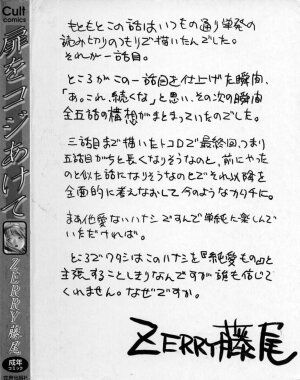 Cult
comics
扉をコジあけて
ZERRY藤尾
成年
コミック
もともとこの話は、いつもの通り単発の
読み切りのつもりで描いたんでした。
それが一話目。
ところがこの一話目を仕上げた瞬間、
「あ。これ、続くな」と思い、その次の瞬間
全五話の構想がまとまっていたのでした。
三話目まで描いたトコロで最終回、つまり
五話目がちと長くなりそうなのと、前にやった
のと似た話になりそうなのとでそれ以降を
全面的に考えなおして今のようなカタチに。
まあ他愛ないハナシですんで単純に楽しんで
いただければ。
ところでワタシはこのハナシを『純愛もの』と
主張することしきりなんですが誰も信じて
くれません。なぜですか。
ZERRY藤尾